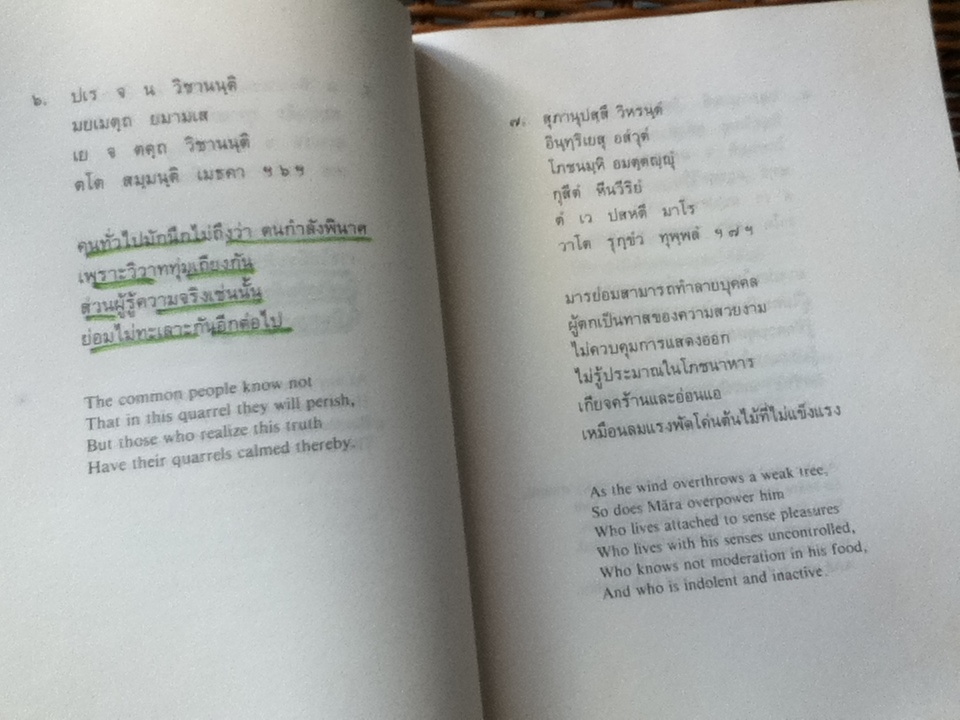 ๖. ปเร จ น วิชานนฺติ
มยเมตฺถ ยมามเส
เย จ ตตฺถ วิชานนฺติ
ตโต สมฺมนฺติ เมธคา ฯ ๖ ฯ
คนทั่วไปมักนึกไม่ถึงว่า ตนกำลังพินาศ
เพราะวิวาททุ่มเถียงกัน
ส่วนผู้รู้ความจริงเช่นนั้น
ย่อมไม่ทะเลาะกันอีกต่อไป
The common people know not
That in this quarrel they will perish,
But those who realize this truth
Have their quarrels calmed thereby.
๗. สุภานุปสฺสึ วิหรนฺตํ
อินฺทฺริเยสุ อสํวุตํ
โภชนมฺหิ อมตฺตญฺญุํ
กุสีตํ หีนวีริยํ
ตํ เว ปสหตี มาโร
วาโต รุกฺขํว ทุพฺพลํ ฯ ๗ ฯ
มารย่อมสามารถทำลายบุคคล
ผู้ตกเป็นทาสของความสวยงาม
ไม่ควบคุมการแสดงออก
ไม่รู้ประมาณในโภชนาหาร
เกียจคร้านและอ่อนแอ
เหมือนลมแรงพัดโค่นต้นไม้ที่ไม่แข็งแรง
As the wind overthrows a weak tree,
So does Māra overpower him
Who lives attached to sense pleasures
Who lives with his senses uncontrolled,
Who knows not moderation in his food,
And who is indolent and inactive.